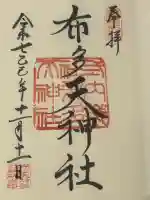 奉拝
布多天神社
令和七乙巳年十一月十一日